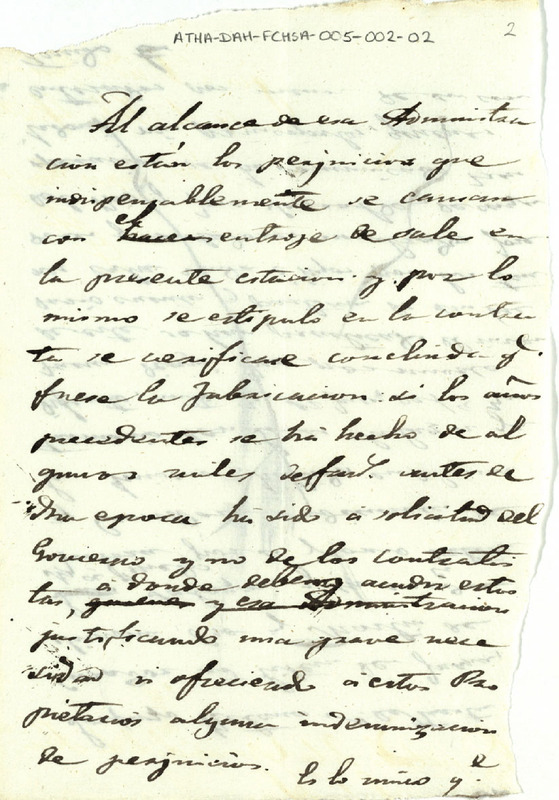 ATHA-DAH-FCHSA-005-002-02
2
Al alcance de esa Administra
cion están los perjuicios que
indispensablemente se causan
con el hacer entroje de sales en
la presente estacion y por lo
mismo se estipulo en la contra
ta se verificase concluida q.
fuese la fabricacion si los años
precedentes se há hecho de al
gunos miles de fan.s antes de
dha epoca há sido á solicitud del
Govierno y no de los contratis
á donde deben acudir estos
tas, quienes y esa Administracion
justificando una grave nece
sidad ú ofreciendo á estos Pro
pietarios alguna indemnizacion
de perjuicios. Es lo unico q.e